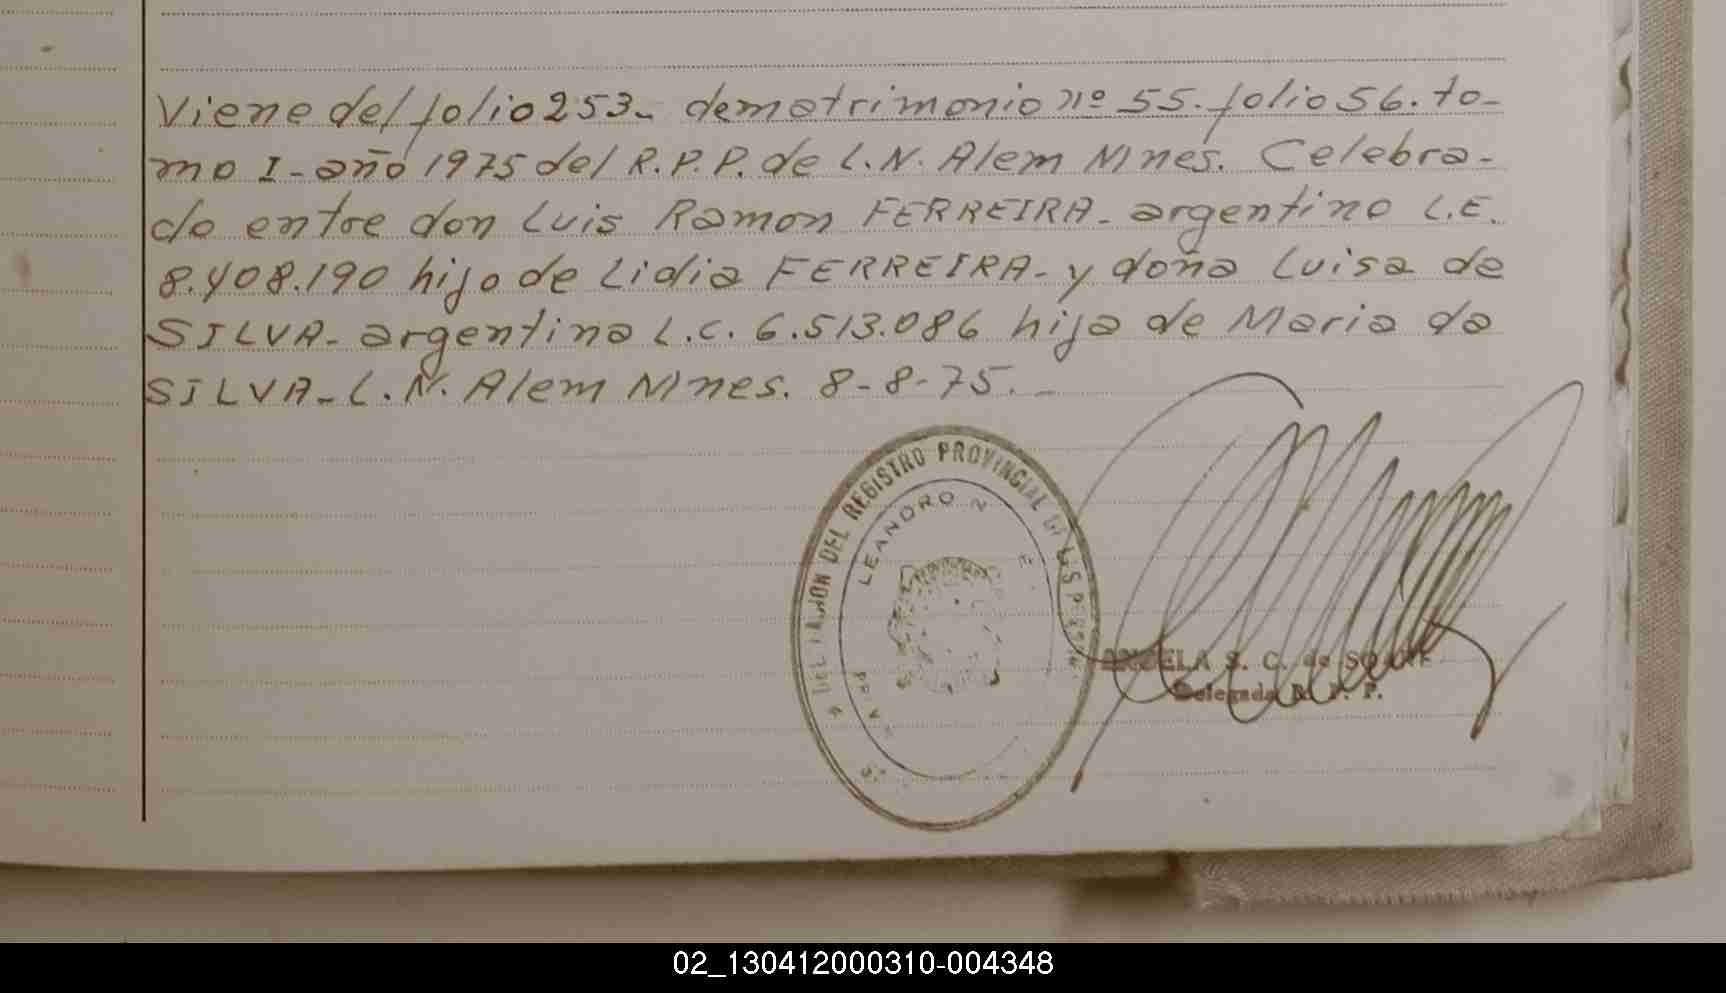 Viene del folio 253- de matrimonio nº 55. folio 56. to-
mo I- año 1975 del R.P.P. de L.N. Alem Mnes. Celebra-
do entre don Luis Ramon FERREIRA- argentino L.E.
8.408.190 hijo de Lidia FERREIRA- y doña Luisa da
SILVA- argentina L.C. 6.513.086 hija de Maria da
SILVA- L.N. Alem Mnes. 8-8-75.-
DEL REGISTRO PROVINCIAL DE LAS PERSONAS
LEANDRO N
ANGELA S. C. de
Delegada R. P. P.
02_130412000310-004348